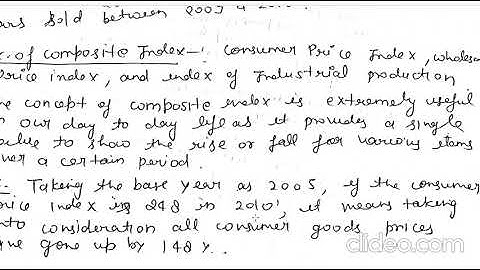 Sold between 2005 &
of composite Index - : Consumer Price Index, wholesa
rice index, and index of Industrial production
e concept of composite index is extremely useful
n our day to day life as it provides a single
alue to show the rise or fall for various items
ver a certain period.
: Taking the base year as 2005, if the consumer
rice Index is 248 in 2010, it means taking
nto consideration all consumer goods prices
ave gone up by 148 %.
clideo.com